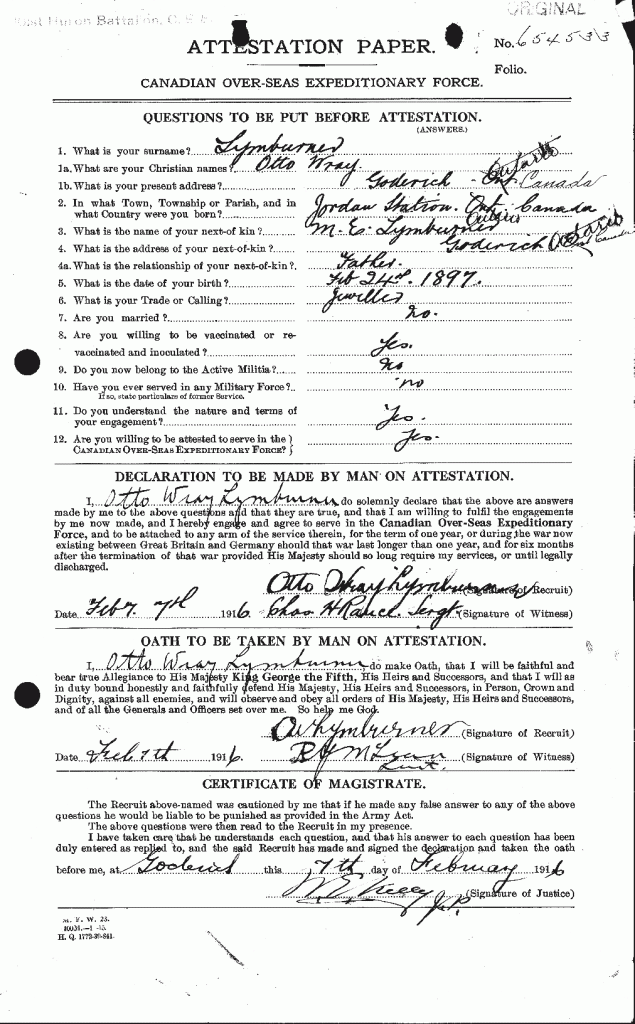 ORIGINAL
ATTESTATION PAPER.
No. 654533
Folio.
CANADIAN OVER-SEAS EXPEDITIONARY FORCE.
QUESTIONS TO BE PUT BEFORE ATTESTATION.
(ANSWERS.)
1. What is your surname? Lymburner
1a. What are your Christian names? Otto Wray
1b. What is your present address? Goderich Ontario Canada
2. In what Town, Township or Parish, and in
what Country were you born? Jordan Station. Ont. Canada
3. What is the name of your next-of kin? M. E. Lymburner
4. What is the address of your next-of-kin? Goderich Ontario Canada
4a. What is the relationship of your next-of-kin? Father.
5. What is the date of your birth? Feb 24th. 1897.
6. What is your Trade or Calling? Jeweller
7. Are you married? No.
8. Are you willing to be vaccinated or re-
vaccinated and inoculated? Yes.
9. Do you now belong to the Active Militia? No
10. Have you ever served in any Military Force? No
If so, state particulars of former Service.
11. Do you understand the nature and terms of
your engagement? Yes.
12. Are you willing to be attested to serve in the
CANADIAN OVER-SEAS EXPEDITIONARY FORCE? Yes.
DECLARATION TO BE MADE BY MAN ON ATTESTATION.
I, Otto Wray Lymburner do solemnly declare that the above are answers
made by me to the above questions and that they are true, and that I am willing to fulfil the engagements
by me now made, and I hereby engage and agree to serve in the Canadian Over-Seas Expeditionary
Force, and to be attached to any arm of the service therein, for the term of one year, or during the war now
existing between Great Britain and Germany should that war last longer than one year, and for six months
after the termination of that war provided His Majesty should so long require my services, or until legally
discharged.
Otto Wray Lymburner (Signature of Recruit)
Date Feb 7th 1916. Sergt (Signature of Witness)
OATH TO BE TAKEN BY MAN ON ATTESTATION.
I, Otto Wray Lymburner do make Oath, that I will be faithful and
bear true Allegiance to His Majesty King George the Fifth, His Heirs and Successors, and that I will as
in duty bound honestly and faithfully defend His Majesty, His Heirs and Successors, in Person, Crown and
Dignity, against all enemies, and will observe and obey all orders of His Majesty, His Heirs and Successors,
and of all the Generals and Officers set over me. So help me God.
O W Lymburner (Signature of Recruit)
Date Feb 7th 1916. Lieut. (Signature of Witness)
CERTIFICATE OF MAGISTRATE.
The Recruit above-named was cautioned by me that if he made any false answer to any of the above
questions he would be liable to be punished as provided in the Army Act.
The above questions were then read to the Recruit in my presence.
I have taken care that he understands each question, and that his answer to each question has been
duly entered as replied to, and the said Recruit has made and signed the declaration and taken the oath
before me, at Goderich this 7th day of February 1916
Kelly J.P. (Signature of Justice)
M. F. W. 23.
H. Q. 1772-39-841.